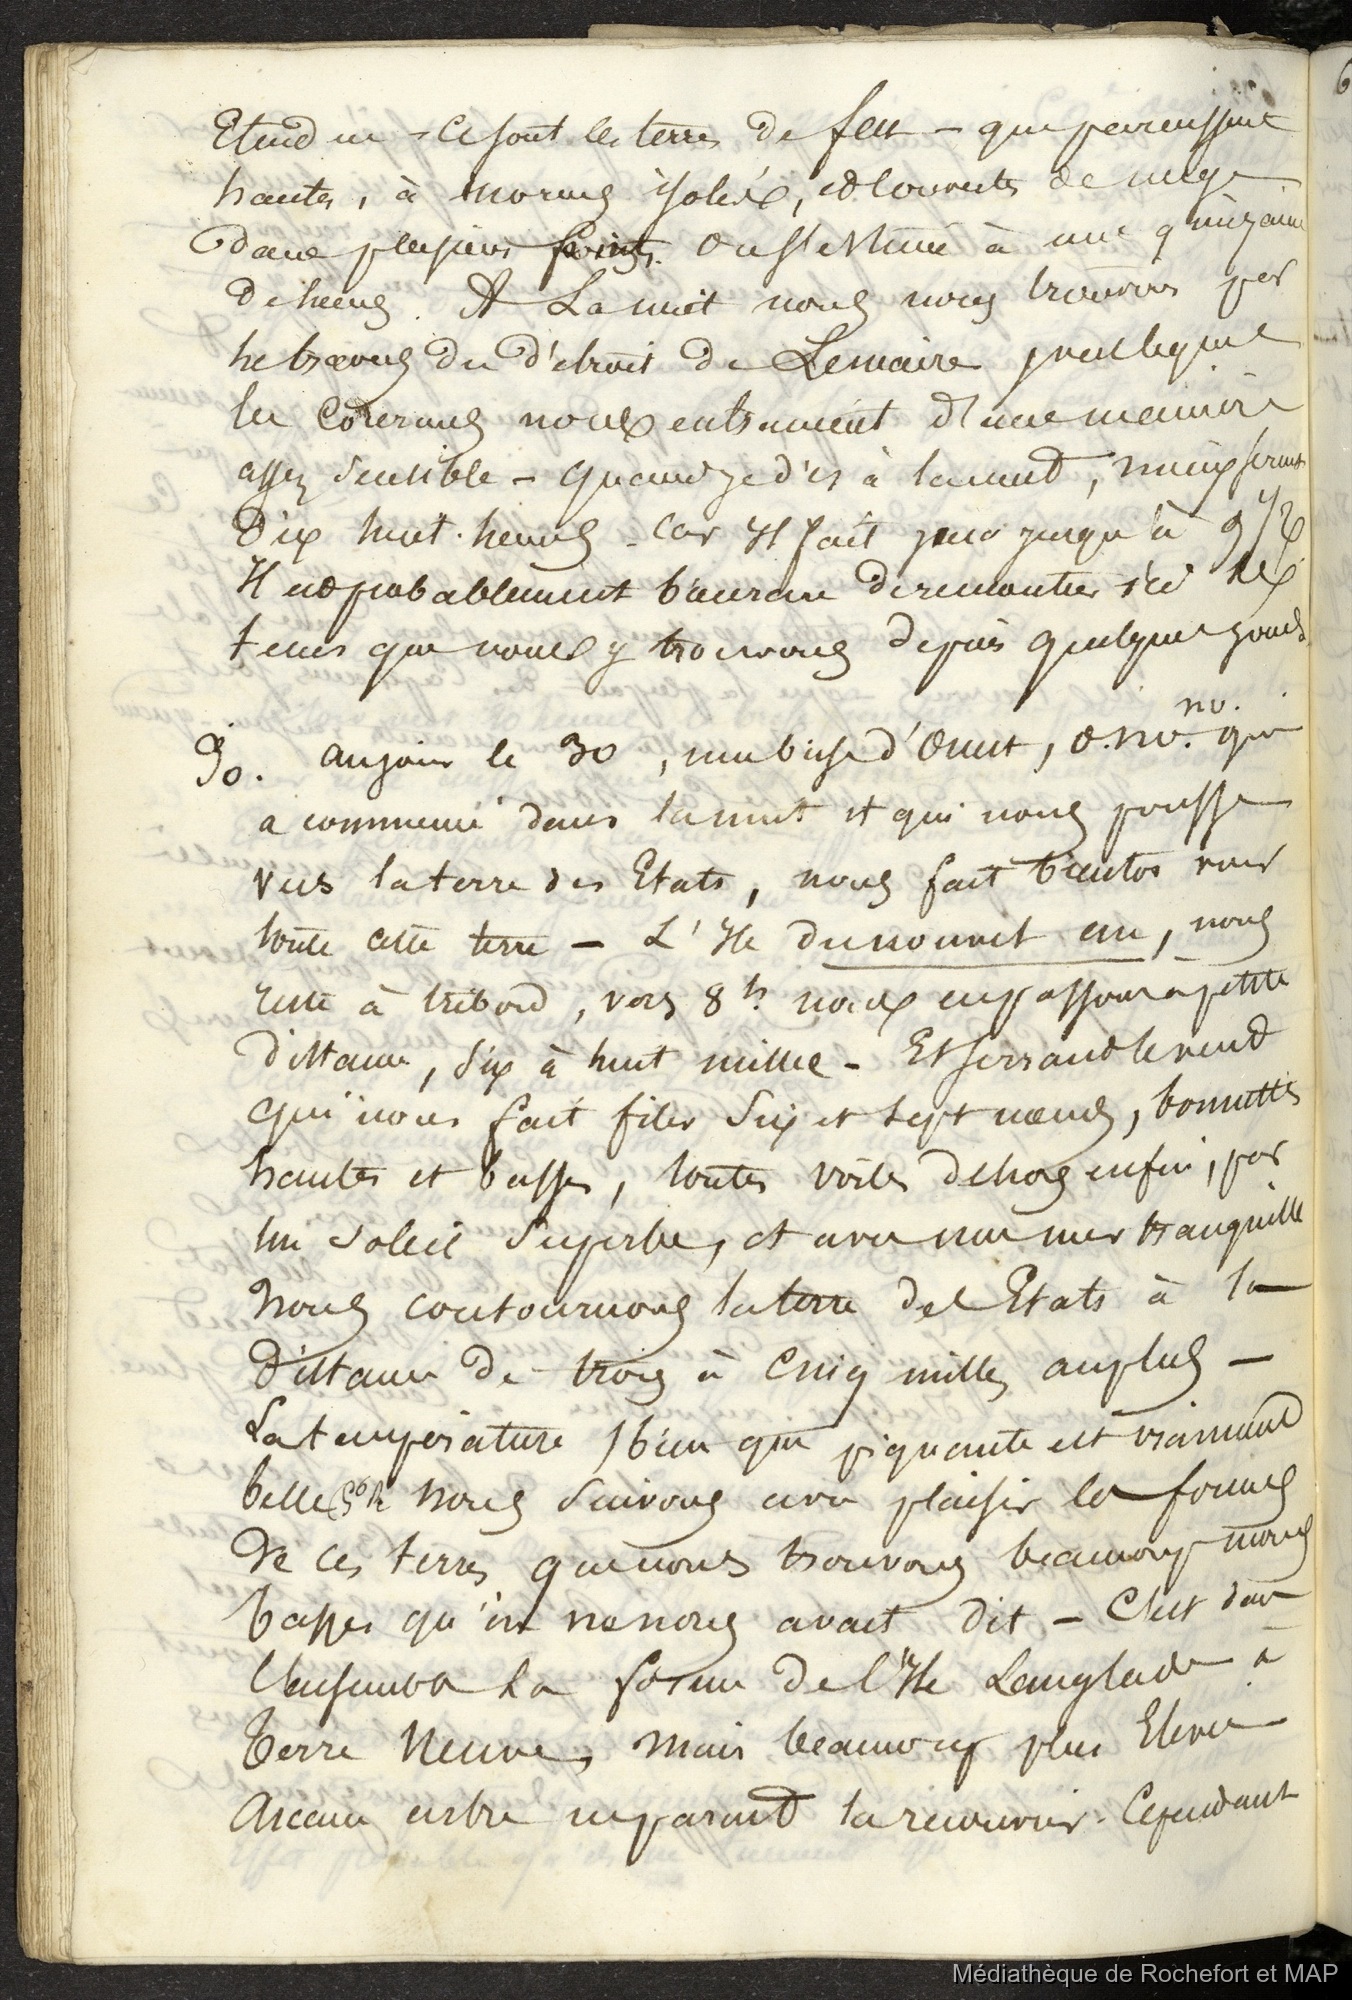 Etendue - Ce sont les terres de feu - qui paroissent
hautes, à mornes isolés, et couverts de neige
dans plusieurs points. On s'estime à une quinzaine
de lieues. A La nuit nous nous trouvons par
le travers du d'etroit de Lemaire vers lequel
les Courrans nous entrainent d'une maniere
assez sensible - quand je dis à la nuit,
Dix huit heures - car Il fait jour jusqu'à 9 1/2
Il est probablement bien rare de rencontrer ici les
tems que nous y trouvons depuis quelques jours
30. au jour le 30, une brise d'Ouest, O.NO. NO. qui
a commencé dans la nuit et qui nous pousse
vers la terre des Etats, nous fait bientot voir
toute cette terre - L'Ile du nouvel an, nous
reste à tribord, vers 8h nous en passons a petite
distance, six à huit milles - Et serrant le vent
qui nous fait filer six et sept noeuds, bonnettes
hautes et basses, toutes voiles dehors enfin, par
un soleil superbe, et avec une mer tranquille
Nous contournons la terre des Etats à la
distance de trois à Cinq milles au plus -
La température, bien que piquante est vraiment
belle Nous suivons avec plaisir les formes
de ces terres que nous trouvons beaucoup moins
basses qu'on ne nous avait dit - C'est dans
l'ensemble la forme de l'Ile Langlade à
Terre Neuve, mais beaucoup plus Elevée
Aucun arbre ne parait la recouvrir. Cependant
Médiathèque de Rochefort et MAP